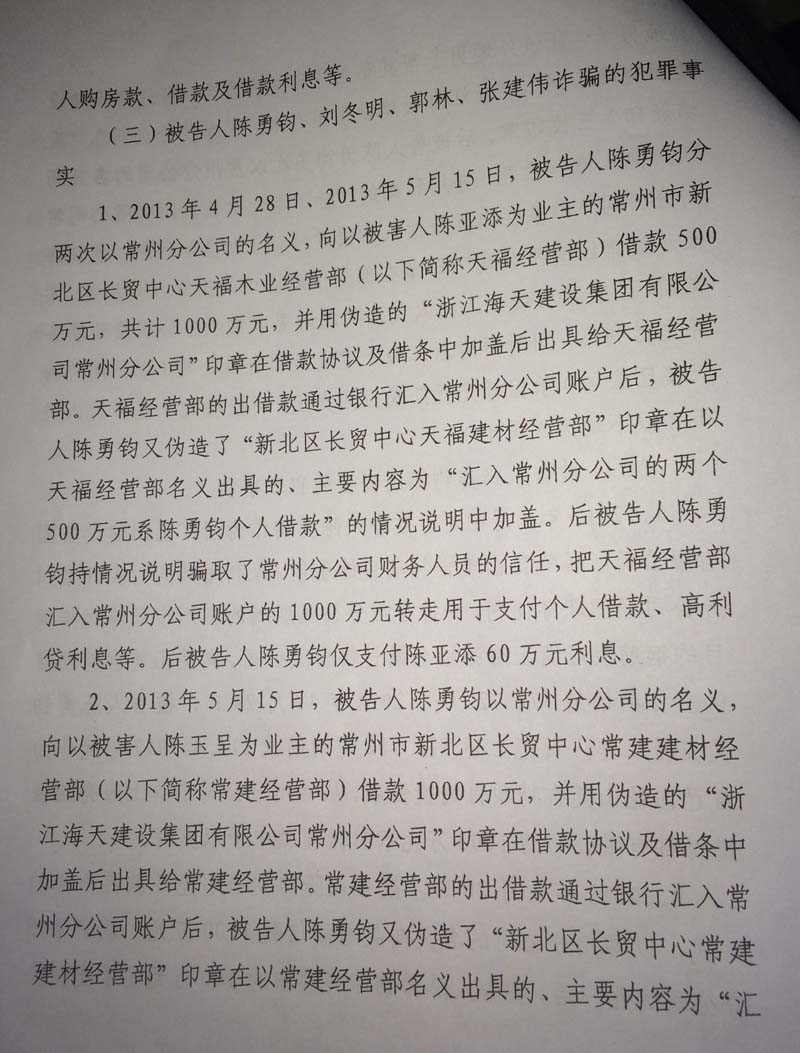 人购房款、借款及借款利息等。
（三）被告人陈勇钧、刘冬明、郭林、张建伟诈骗的犯罪事
实
1、2013年4月28日、2013年5月15日，被告人陈勇钧分
两次以常州分公司的名义，向以被害人陈亚添为业主的常州市新
北区长贸中心天福木业经营部（以下简称天福经营部）借款500
万元，共计1000万元，并用伪造的“浙江海天建设集团有限公
司常州分公司”印章在借款协议及借条中加盖后出具给天福经营
部。天福经营部的出借款通过银行汇入常州分公司账户后，被告
人陈勇钧又伪造了“新北区长贸中心天福建材经营部”印章在以
天福经营部名义出具的、主要内容为“汇入常州分公司的两个
500万元系陈勇钧个人借款”的情况说明中加盖。后被告人陈勇
钧持情况说明骗取了常州分公司财务人员的信任，把天福经营部
汇入常州分公司账户的1000万元转走用于支付个人借款、高利
贷利息等。后被告人陈勇钧仅支付陈亚添60万元利息。
2、2013年5月15日，被告人陈勇钧以常州分公司的名义，
向以被害人陈玉呈为业主的常州市新北区长贸中心常建建材经
营部（以下简称常建经营部）借款1000万元，并用伪造的“浙
江海天建设集团有限公司常州分公司”印章在借款协议及借条中
加盖后出具给常建经营部。常建经营部的出借款通过银行汇入常
州分公司账户后，被告人陈勇钧又伪造了“新北区长贸中心常建
建材经营部”印章在以常建经营部名义出具的、主要内容为“汇